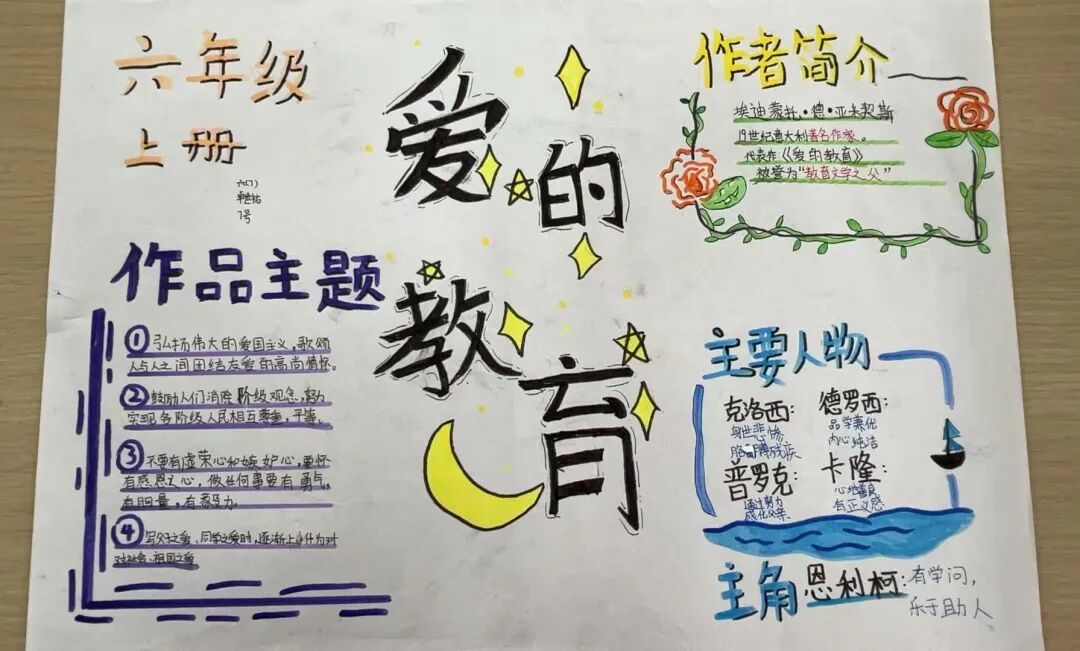 六年级
上册
7号
爱的
教育
作者简介
埃迪蒙托·德·亚米契斯
19世纪意大利著名作家。
代表作《爱的教育》
被誉为“教育文学之父”
作品主题
①弘扬伟大的爱国主义,歌颂
人与人之间团结友爱的高尚情怀。
②鼓励人们消除阶级观念,努力
实现各阶级人民相互尊重,平等。
③不要有虚荣心和嫉妒心,要怀
有感恩之心,做任何事要有勇气,
有胆量,有毅力。
④写父子之爱、同学之爱时,逐渐上升为对
对社会、祖国之爱
主要人物
克洛西:
身世悲惨
胳膊残疾
德罗西:
品学兼优
内心纯洁
普罗克
通过努力
感化父亲
卡隆:
心地善良
有正义感
主角恩利柯:有学问,
乐于助人